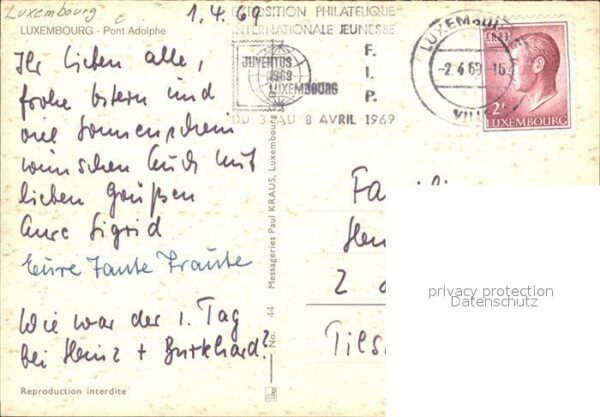 Luxembourg
LUXEMBOURG - Pont Adolphe
1.4.69
Ihr lieben alle,
frohe Ostern und
viel Sonnenschein
wünschen Euch mit
lieben Grüßen
Eure Sigrid
Eure Tante Traute
Wie war der 1. Tag
bei Heinz + Burkhard?
Reproduction interdite
No. 44 Messageries Paul KRAUS, Luxembourg
EXPOSITION PHILATELIQUE
INTERNATIONALE JEUNESSE
JUVENTUS
1969
LUXEMBOURG
F.
I.
P.
DU 3 AU 8 AVRIL 1969
LUXEMBOURG
-2.4.69-16
VILLE
2F
LUXEMBOURG
Fa
2
Tils
privacy protection
Datenschutz